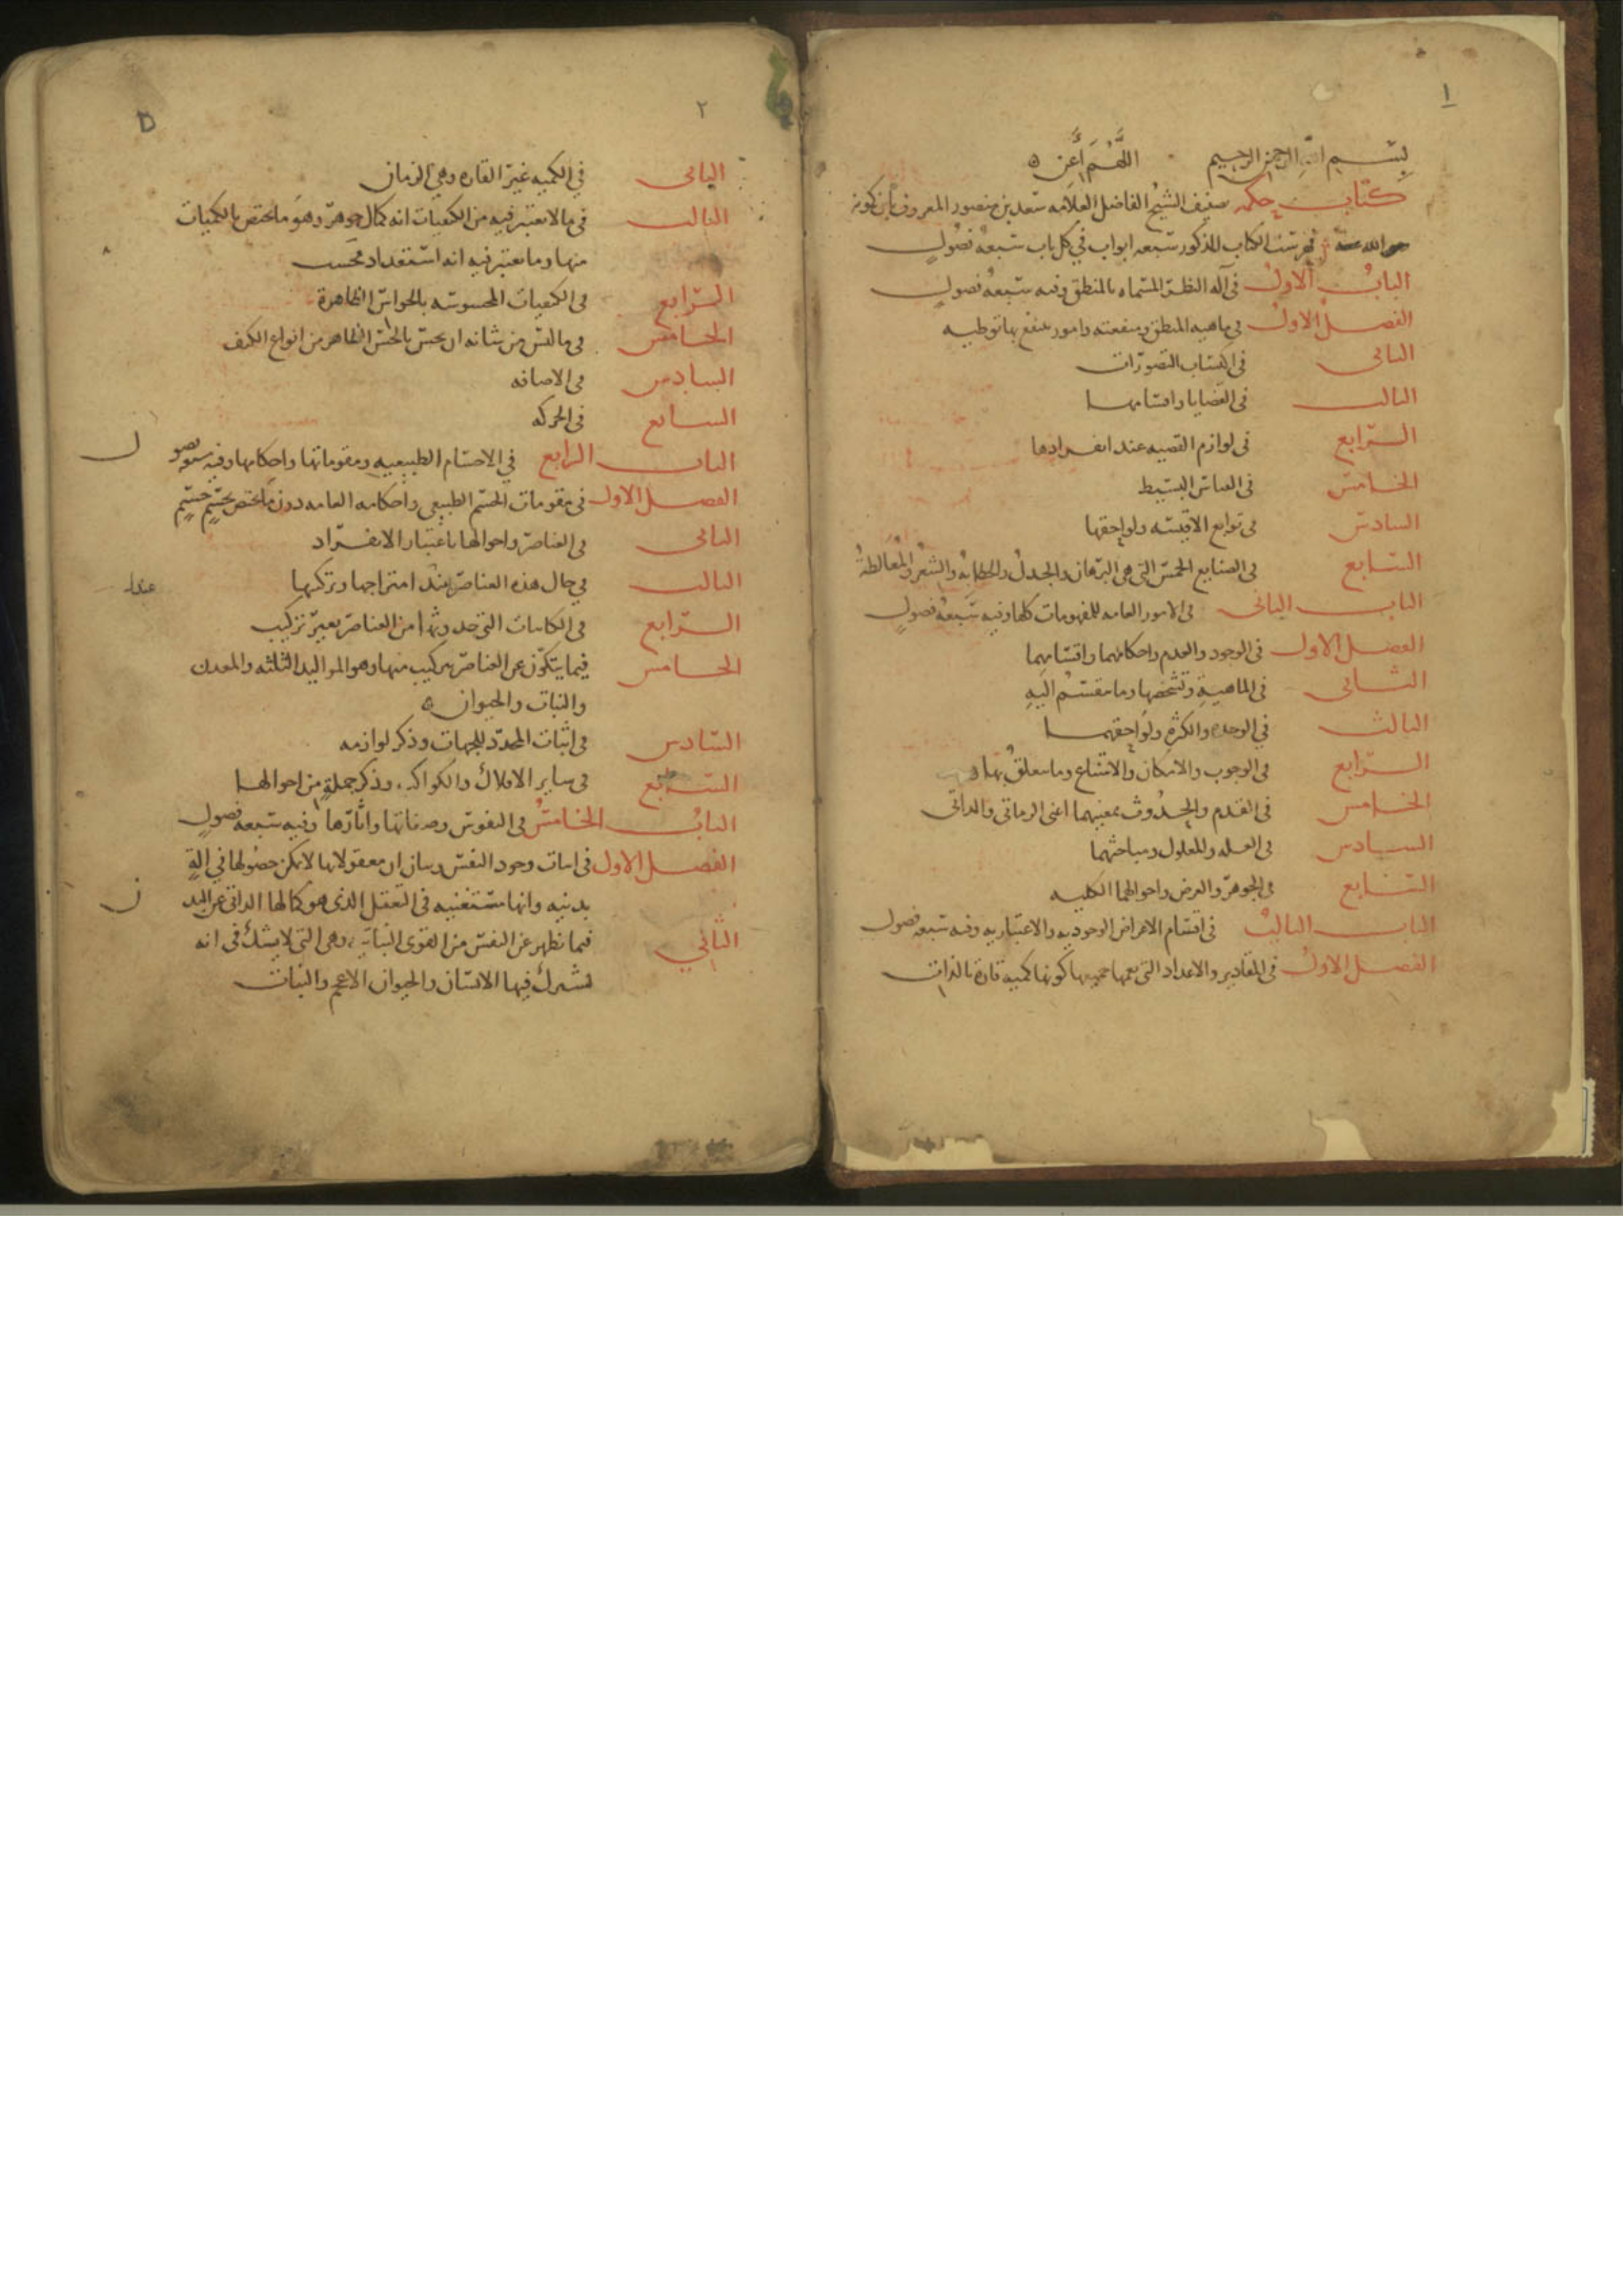 ١
بسم الله الرحمن الرحيم اللهم أعن
كتاب حكمه تصنيف الشيخ الفاضل العلامه سعد بن منصور المعروف بابن كمونه
فهرست الكتاب المذكور سبعه ابواب في كل باب سبعه فصول
الباب الاول في آله النظر المسماه بالمنطق وفيه سبعه فصول
الفصل الاول في ماهيه المنطق ومنفعته وامور ينتفع بها توطيه
الثاني في اكتساب التصورات
الثالث في القضايا واقسامها
الرابع في لوازم القضيه عند انفرادها
الخامس في القياس البسيط
السادس في توابع الاقيسه ولواحقها
السابع في الصنايع الخمس التي هي البرهان والجدل والخطابه والشعر والمغالطة
الباب الثاني في الامور العامه للمفهومات كلها وفيه سبعه فصول
الفصل الاول في الوجود والعدم واحكامهما واقسامهما
الثاني في الماهية وتشخصها وما ينقسم اليه
الثالث في الوحده والكثرة ولواحقهما
الرابع في الوجوب والامكان والامتناع وما يتعلق بها
الخامس في القدم والحدوث بمعنييهما اعنى الزماني والذاتي
السادس في العله والمعلول ومباحثهما
السابع في الجوهر والعرض واحوالهما الكليه
الباب الثالث في اقسام الاعراض الوجوديه والاعتباريه وفيه سبعه فصول
الفصل الاول في المقادير والاعداد التي يعمها جميعها كونها كميه قارة بالذات
٢
الثاني في الكميه غير القاره وهي الزمان
الثالث في ما لا يعتبر فيه من الكيفيات انه كمال جوهر وهو ما يختص بالكميات
منها وما يعتبر فيه انه استعداد فحسب
الرابع في الكيفيات المحسوسه بالحواس الظاهرة
الخامس في ما ليس من شانه ان يحس بالحس الظاهر من انواع الكيف
السادس في الاضافه
السابع في الحركه
الباب الرابع في الاجسام الطبيعيه ومقوماتها واحكامها وفيه
الفصل الاول في مقومات الجسم الطبيعي واحكامه العامه دون ما يختص بجسم جسم
الثاني في العناصر واحوالها باعتبار الانفراد
الثالث في حال هذه العناصر عند امتزاجها وتركبها
عند
الرابع في الكاينات التي حدوثها من العناصر بغير تركيب
الخامس فيما يتكون عن العناصر بتركيب منها وهو المواليد الثلثه والمعدن
والنبات والحيوان
السادس في اثبات المحدد للجهات وذكر لوازمه
السابع في ساير الافلاك والكواكب وذكر جملة من احوالها
الباب الخامس في النفوس وصفاتها واثارها وفيه سبعه فصول
الفصل الاول في اثبات وجود النفس وبيان ان معقولاتها لا يمكن حصولها في الة
بدنيه وانها مستغنيه في التعقل الذى هو كمالها الذاتي عن البدن
الثاني فيما يظهر عن النفس من القوى النباتيه وهي التي لا يشك في انه
يشترك فيها الانسان والحيوان الاعجم والنبات